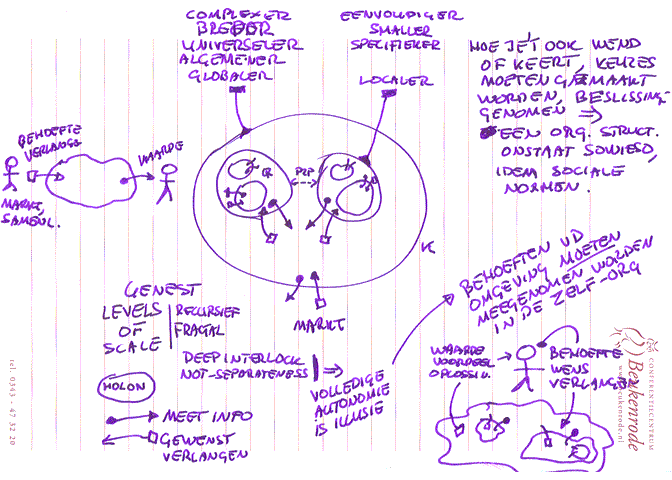 COMPLEXER
BREDER
UNIVERSELER
ALGEMENER
GLOBALER
EENVOUDIGER
SMALLER
SPECIFIEKER
LOCALER
HOE JE'T OOK WEND
OF KEERT, KEUZES
MOETEN GEMAAKT
WORDEN, BESLISSING
GENOMEN ⇒
EEN ORG. STRUCT.
ONSTAAT SOWIESO,
IDEM SOCIALE
NORMEN.
BEHOEFTE
VERLANGS
WAARDE
MARKT,
SAMENL.
P2P
K
MARKT
GENEST
LEVELS
OF
SCALE
RECURSIEF
FRACTAL
DEEP INTERLOCK
NOT-SEPARATENESS
⇒
VOLLEDIGE
AUTONOMIE
IS ILLUSIE
HOLON
MEET INFO
GEWENST
VERLANGEN
BEHOEFTEN VD
OMGEVING MOETEN
MEEGENOMEN WORDEN
IN DE ZELF-ORG
WAARDE
VOORDEEL
OPLOSSIN.
BEHOEFTE
WENS
VERLANGEN
CONFERENTIECENTRUM
Beukenrode
www.beukenrode.nl
tel. 0343 - 47 32 20